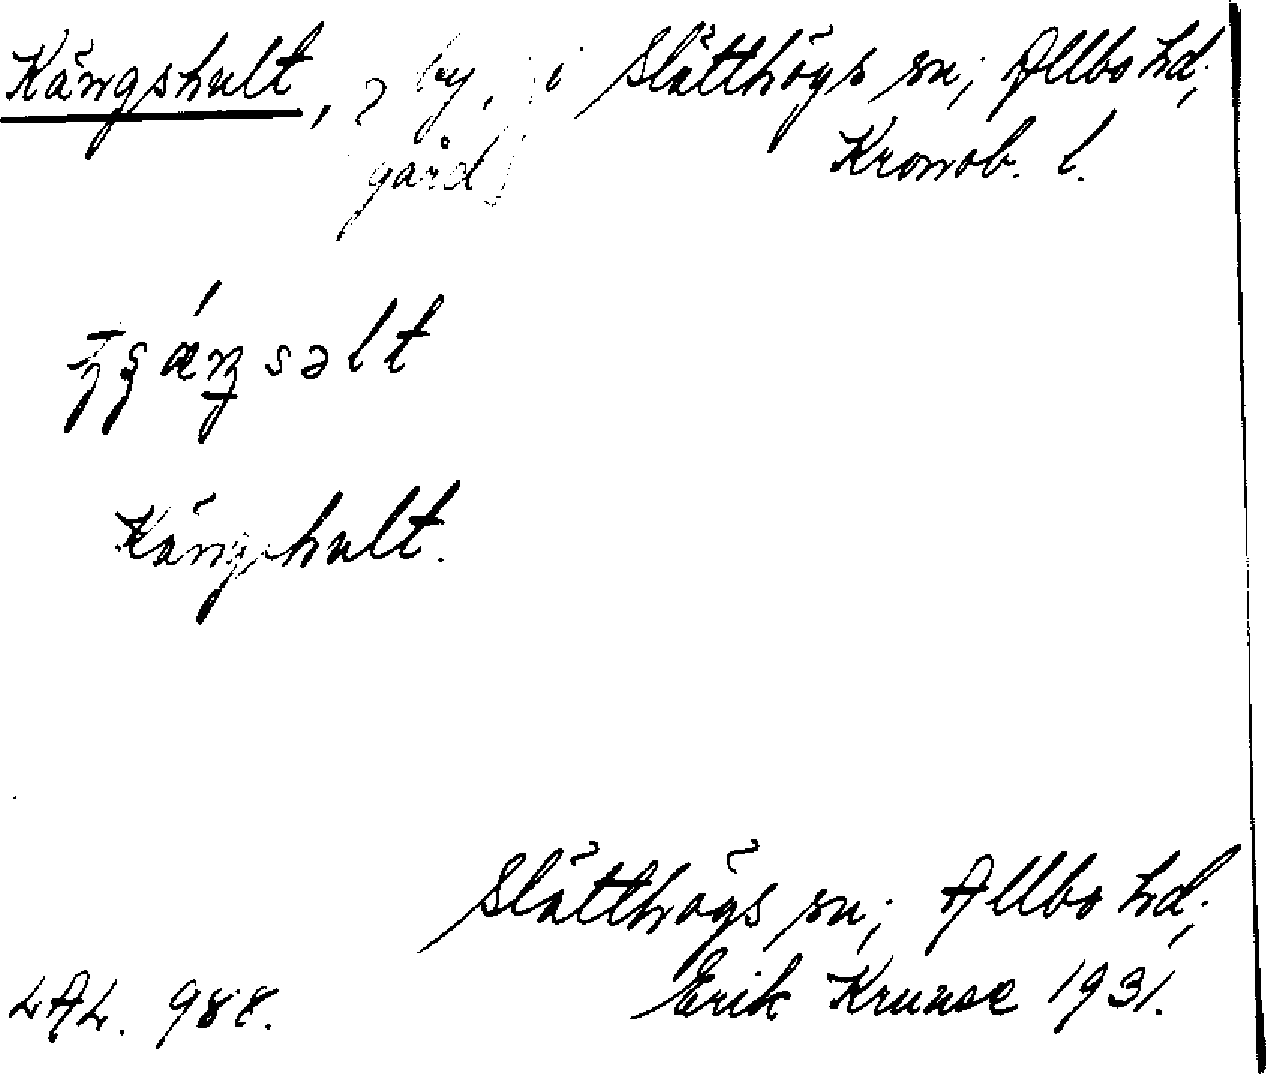 Kängshult, 2 by, i Slätthögs sn; Allbo hd;
gård Kronob. l.
Kängshult.
Slätthögs sn; Allbo hd;
LAL. 988. Erik Krunse 1931.